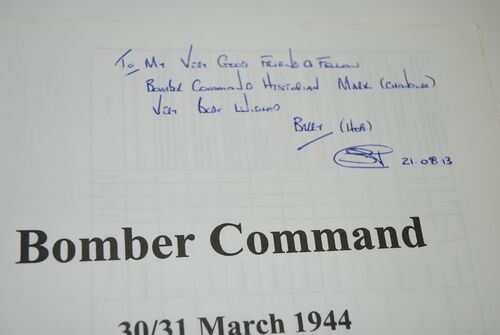 To My Very Good Friend & Fellow
Bomber Command Historian Mark (Chandler)
Very Best Wishes
(Hor)
21.08.13
Bomber Command
30/31 March 1944